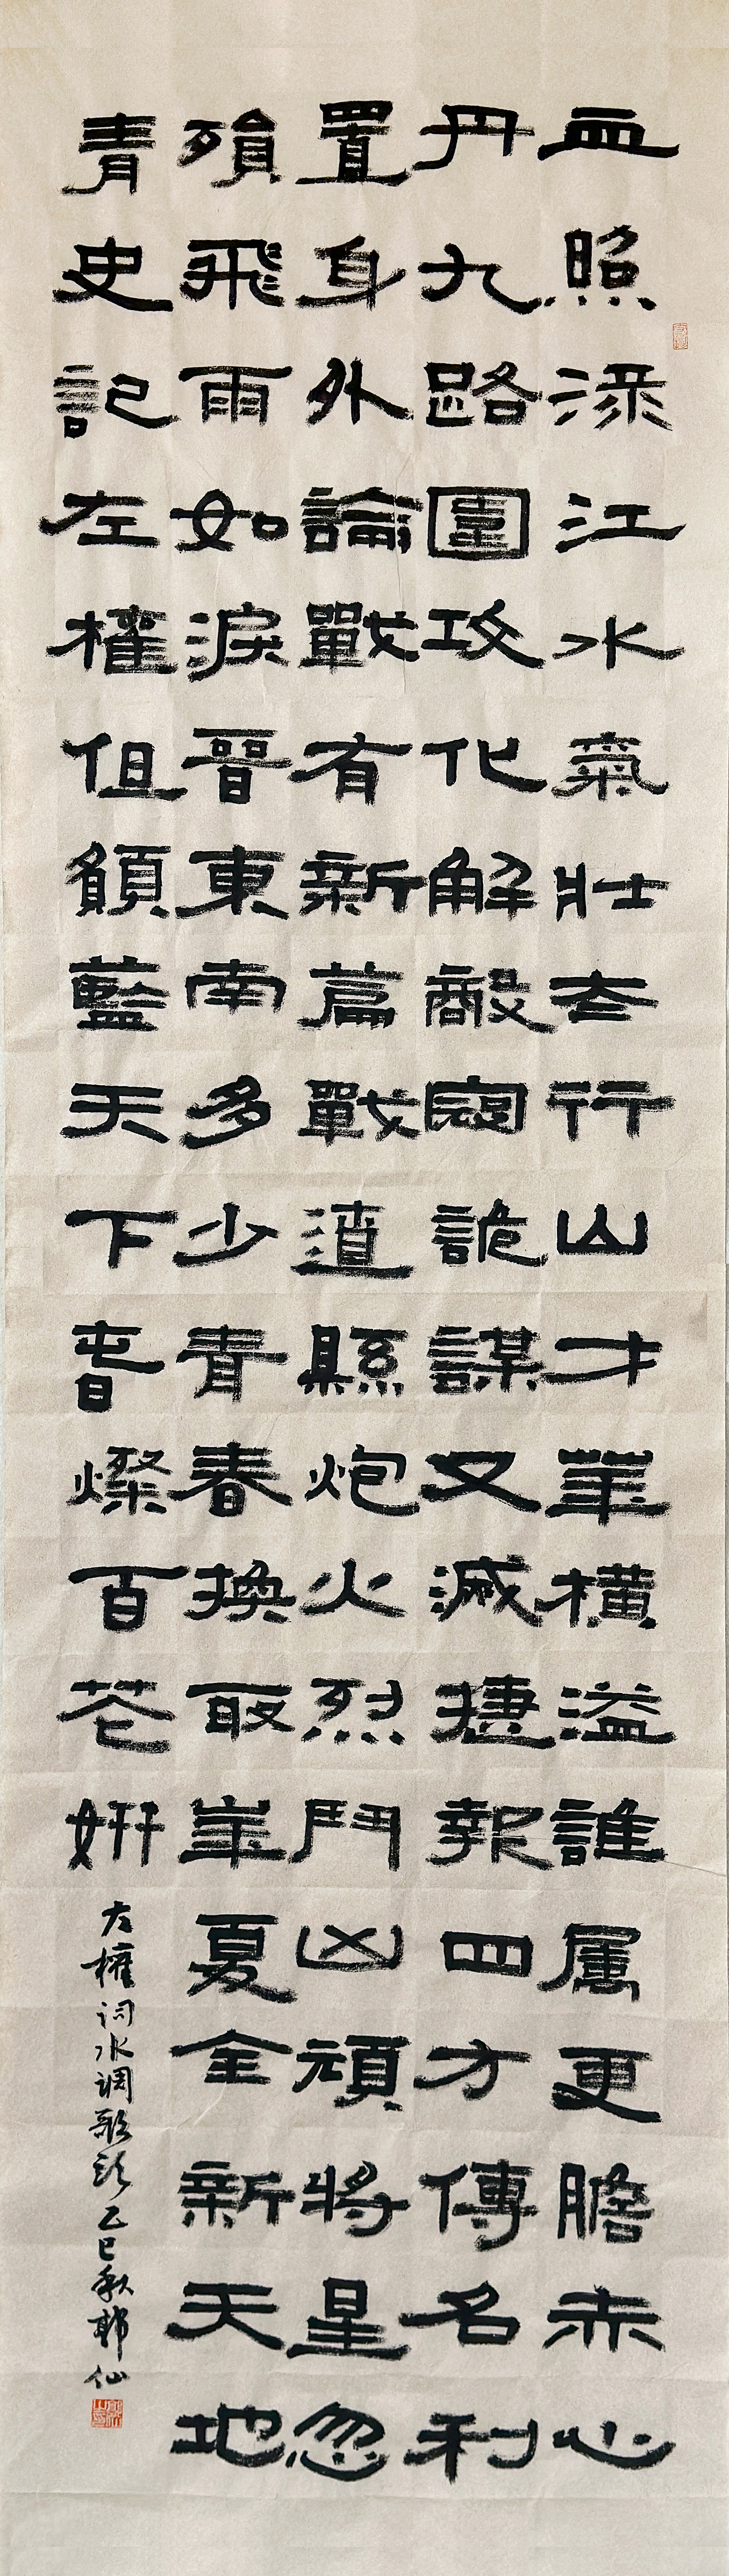 血照渌江水氣壯太行山才華橫溢誰属更膽赤心
丹九路圍攻化解敵寇詭謀又滅捷報四方傳名利
置身外論戰有新篇戰遼縣炮火烈鬥凶頑將星忽
殞飛雨如淚晉東南多少青春換取華夏全新天地
青史記左權但願藍天下春燦百花妍
左權词水调歌头乙巳秋郭仙